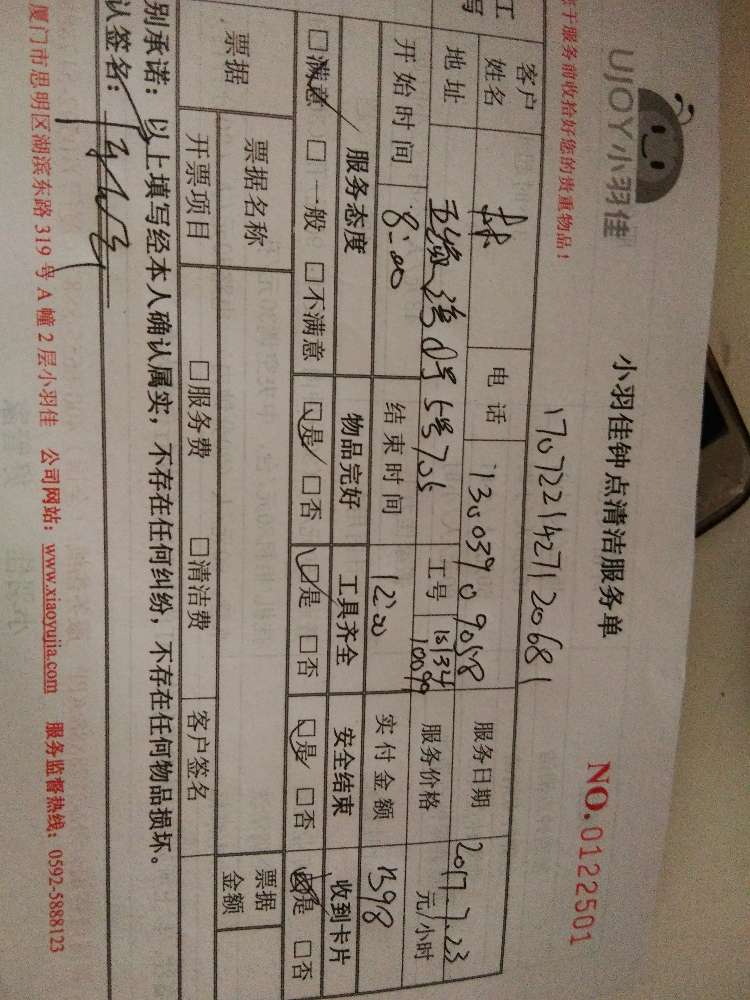 UJOY小羽佳
小羽佳钟点清洁服务单
NO.0122501
于服务前收拾好您的贵重物品！
1707221427120681
客户姓名 林 电话 服务日期 2017.7.23
地址 工号 服务价格 元/小时
开始时间 8:00 结束时间 12:00 实付金额 1398
服务态度 物品完好 工具齐全 安全结束 收到卡片
□满意 □一般 □不满意 □是 □否 □是 □否 □是 □否 □是 □否
票据 票据名称 票据金额
开票项目 □服务费 □清洁费 客户签名
别承诺：以上填写经本人确认属实，不存在任何纠纷，不存在任何物品损坏。
认签名：
厦门市思明区湖滨东路319号A幢2层小羽佳 公司网站：www.xiaoyujia.com 服务监督热线：0592-5888123